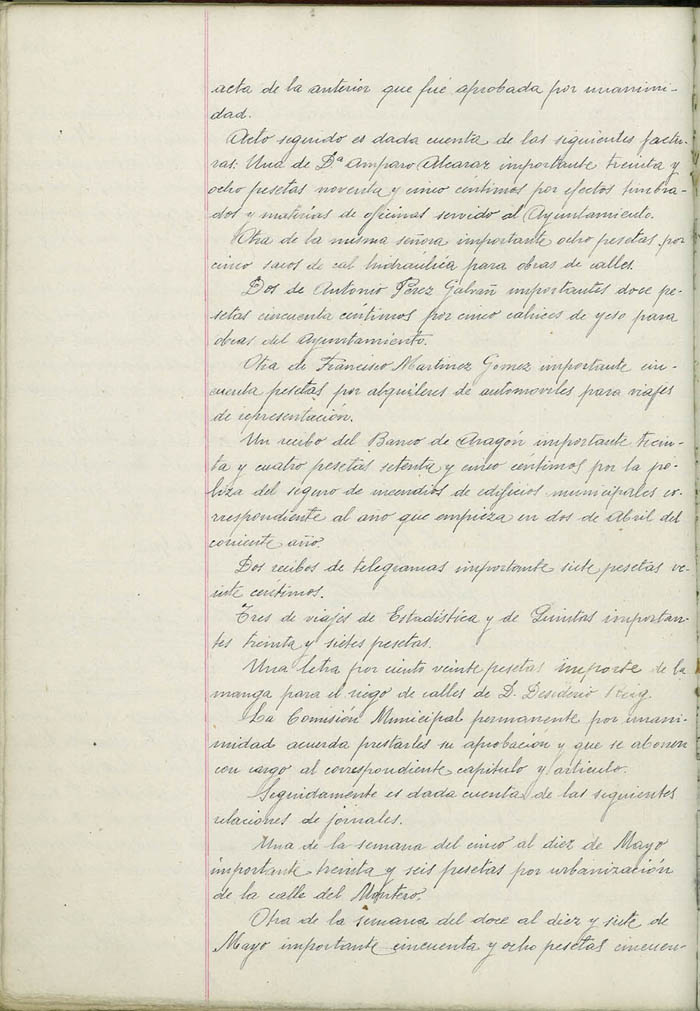 acta de la anterior que fué aprobada por unanimi-
dad.
Acto seguido es dada cuenta de las siguientes factu-
ras: Una de Dª Amparo Alcaraz importante treinta y
ocho pesetas noventa y cinco centimos por efectos timbra-
dos y materias de oficinas servido al Ayuntamiento.
Otra de la misma señora importante ocho pesetas por
cinco sacos de cal hidraúlica para obras de calles.
Dos de Antonio Pérez Galvañ importantes doce pe-
setas cincuenta céntimos por cinco cahices de yeso para
obras del Ayuntamiento.
Otra de Francisco Martinez Gomez importante cin-
cuenta pesetas por alquileres de automoviles para viajes
de representación.
Un recibo del Banco de Aragón importante trein-
ta y cuatro pesetas setenta y cinco centimos por la pó-
liza del seguro de incendios de edificios municipales co-
rrespondiente al año que empieza en dos de Abril del
corriente año.
Dos recibos de telegramas importante siete pesetas ve-
inte centimos.
Tres de viajes de Estadística y de Quintas importan-
tes treinta y sietes pesetas.
Una letra por ciento veinte pesetas importe de la
manga para el riego de calles de D. Desiderio Reig
La Comisión Municipal permanente por unani-
midad acuerda prestarles su aprobación y que se abonen
con cargo al correspondiente capitulo y articulo.
Seguidamente es dada cuenta de las siguientes
relaciones de jornales.
Una de la semana del cinco al diez de Mayo
importante treinta y seis pesetas por urbanización
de la calle del Montero.
Otra de la semana del doce al diez y siete de
Mayo importante cincuenta y ocho pesetas cincuen-